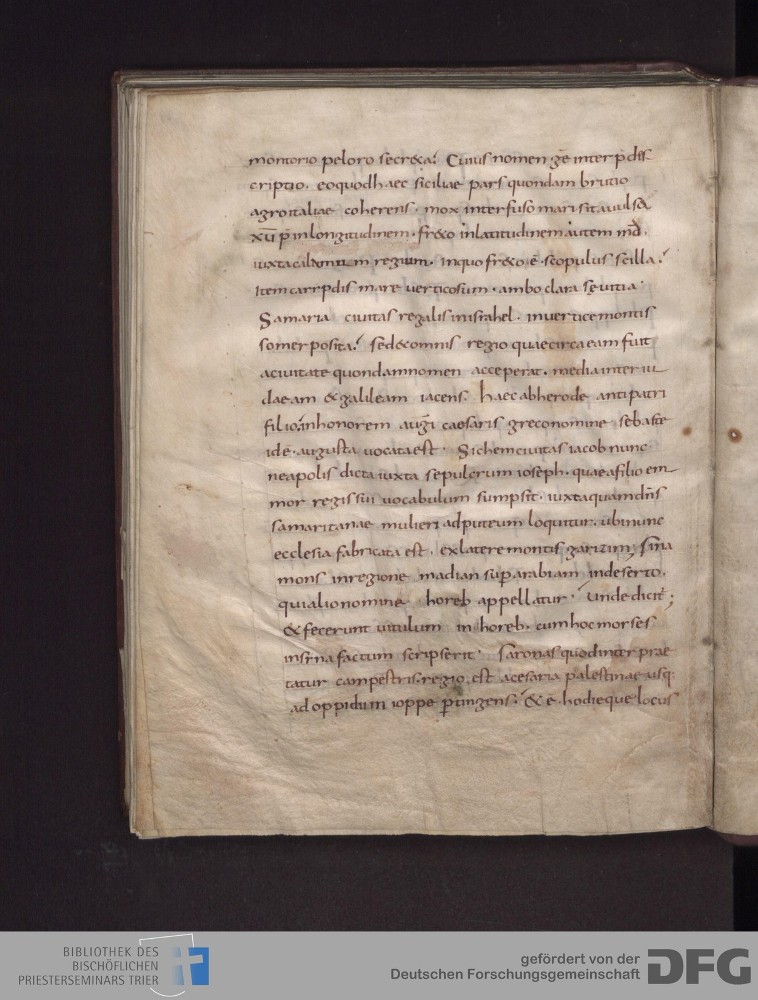 montorio peloro secr&a. Cuius nomen grę interp̄dis
criptio. eo quod haec siciliae pars quondam brutio
agro italiae coherens. mox interfuso mari sit auulsa
xū p̄ in longitudinem. fr&o in latitudinem autem md̄.
iuxta regium. In quo fr&o ē scopulus scilla.
Item carrpdis mare uerticosum. ambo clara sęuitia.
Samaria ciuitas regalis in israhel. in uertice montis
somer posita. sed & omnis regio quae circa eam fuit
a ciuitate quondam nomen acceperat. media inter iu
daeam & galileam iacens. haec ab herode antipatri
filio in honorem augi caesaris greco nomine sebaste
id ē. augusta uocata est. Sichem ciuitas iacob nunc
neapolis dicta iuxta sepulcrum ioseph. quae a filio em
mor regis sui uocabulum sumpsit. iuxta quam dn̄s
samaritanae mulieri ad puteum loquitur. ubi nunc
ecclesia fabricata est. ex latere montis garizim; Sina
mons in regione madian sup̄ arabiam in deserto.
qui alio nomine horeb appellatur. Unde dicit̄;
& fecerunt uitulum in horeb. cum hoc morses
in sina factum scripserit. Saronas quod inter prae
tatur campestris. regio est a cesaria palestinae usq;
ad oppidum ioppe p̄tingens. & ē hodieque locus
BIBLIOTHEK DES
BISCHÖFLICHEN
PRIESTERSEMINARS TRIER
gefördert von der
Deutschen Forschungsgemeinschaft
DFG